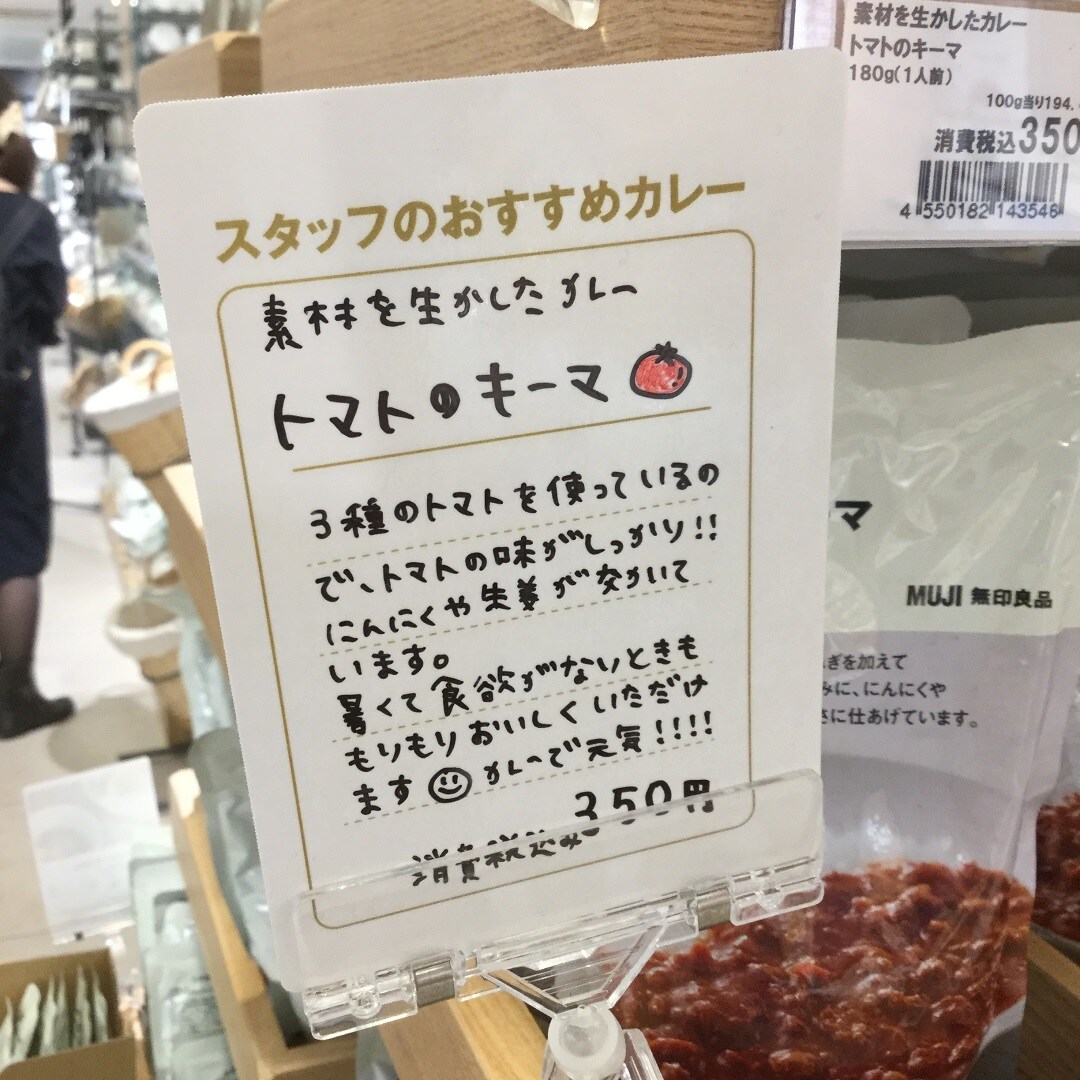 スタッフのおすすめカレー
素材を生かしたカレー
トマトのキーマ
3種のトマトを使っているの
で、トマトの味がしっかり!!
にんにくや生姜が効いて
います。
暑くて食欲がないときも
もりもりおいしくいただけ
ます カレーで元気!!!!
消費税込み350円
素材を生かしたカレー
トマトのキーマ
180g(1人前)
100g当り194.
消費税込350
4 550182 143546
マ
MUJI 無印良品
ぎを加えて
みに、にんにくや
さに仕あげています。